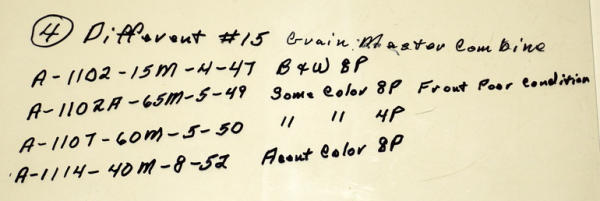 ④ Different #15 Grain Master Combine
A-1102-15M-4-47 B&W 8P
A-1102A-65M-5-49 Some Color 8P Front Poor Condition
A-1107-60M-5-50 " " 4P
A-1114-40M-8-52 Acent Color 8P